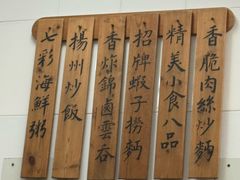 香脆肉絲炒麵
精美小食八品
招牌蝦子撈麵
香炸錦鹵雲吞
揚州炒飯
七彩海鮮粥